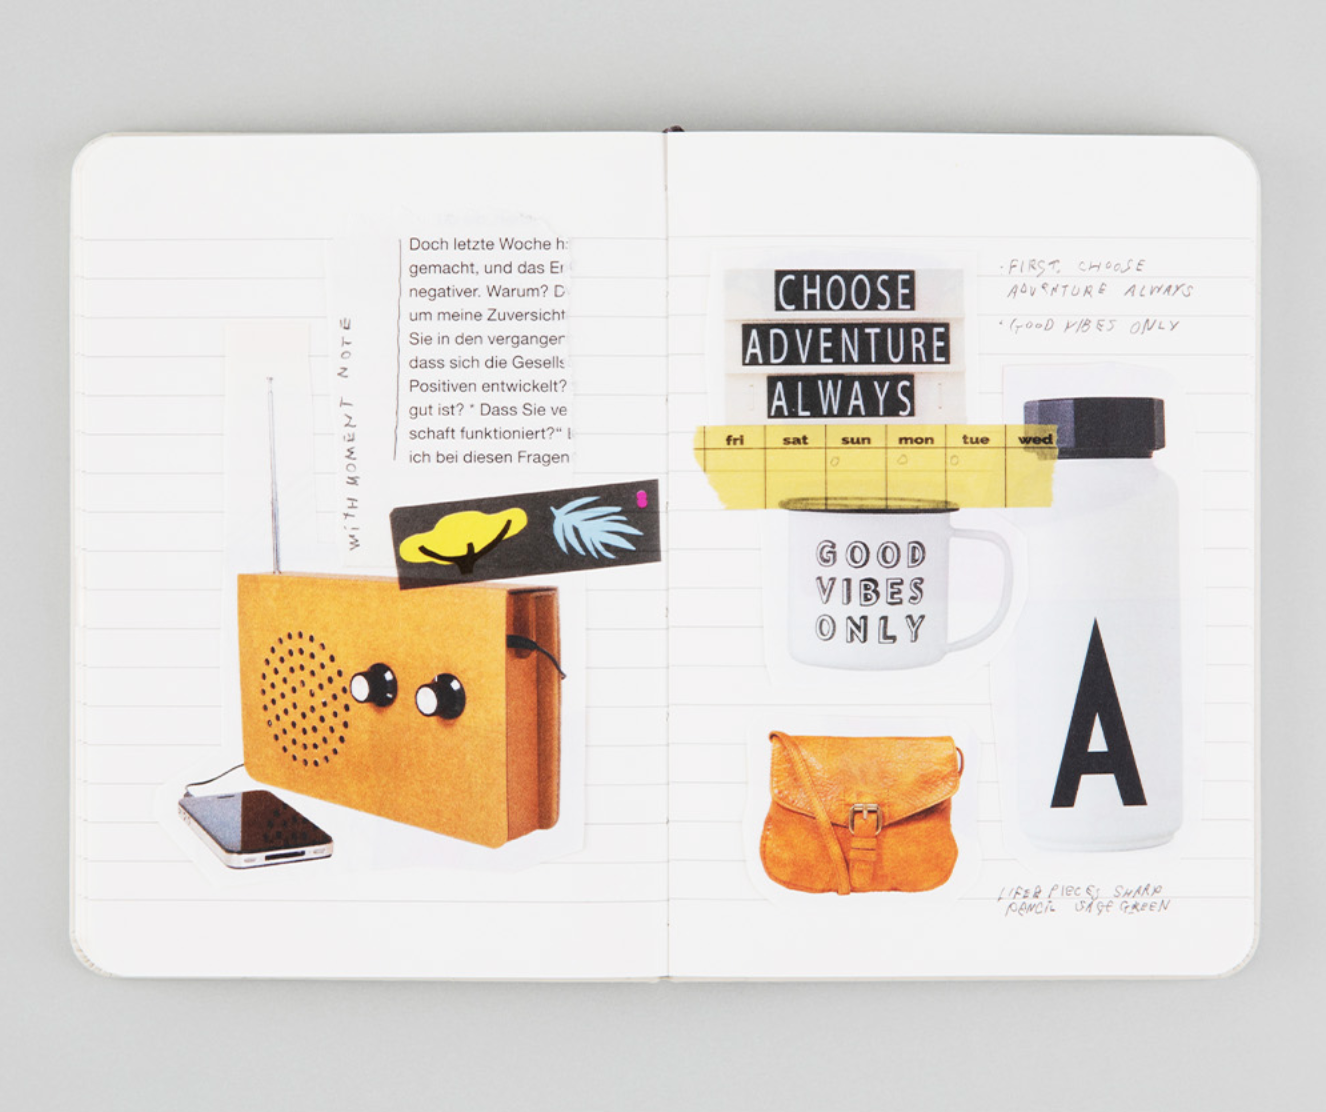 Doch letzte Woche h
gemacht, und das Er
negativer. Warum? D
um meine Zuversicht
Sie in den vergangen
dass sich die Gesells
Positiven entwickelt?
gut ist? " Dass Sie ve
schaft funktioniert?"
ich bei diesen Fragen
WITH MOMENT NOTE
CHOOSE
ADVENTURE
ALWAYS
fri sat sun mon tue wed
GOOD
VIBES
ONLY
· FIRST, CHOOSE
ADVENTURE ALWAYS
· GOOD VIBES ONLY
A
PIECES SHARP
PENCIL SAGE GREEN